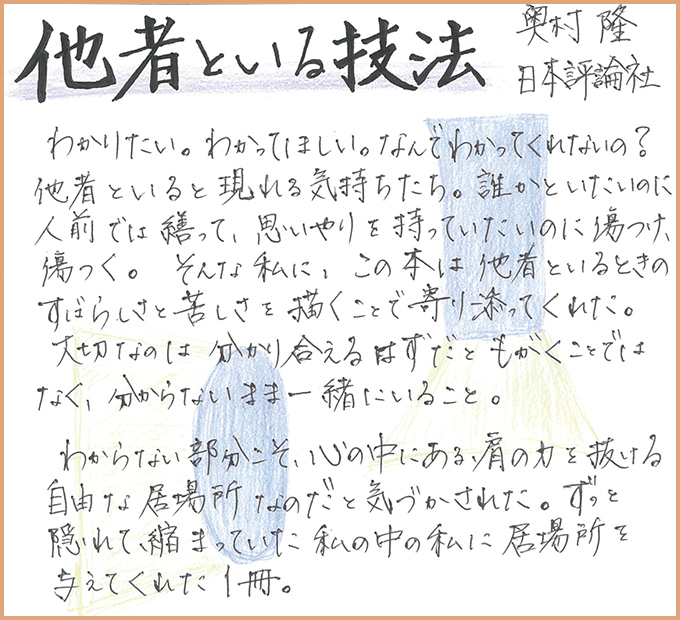 他者といる技法
奥村 隆
日本評論社
わかりたい。わかってほしい。なんでわかってくれないの？
他者といると現れる気持ちたち。誰かといたいのに
人前では繕って、思いやりを持っていたいのに傷つけ、
傷つく。 そんな私に、この本は他者といるときの
すばらしさと苦しさを描くことで寄り添ってくれた。
大切なのは分かり合えるはずだともがくことでは
なく、分からないまま一緒にいること。
わからない部分こそ、心の中にある、肩の力を抜ける
自由な居場所なのだと気づかされた。ずっと
隠れて、縮まっていた私の中の私に居場所を
与えてくれた1冊。